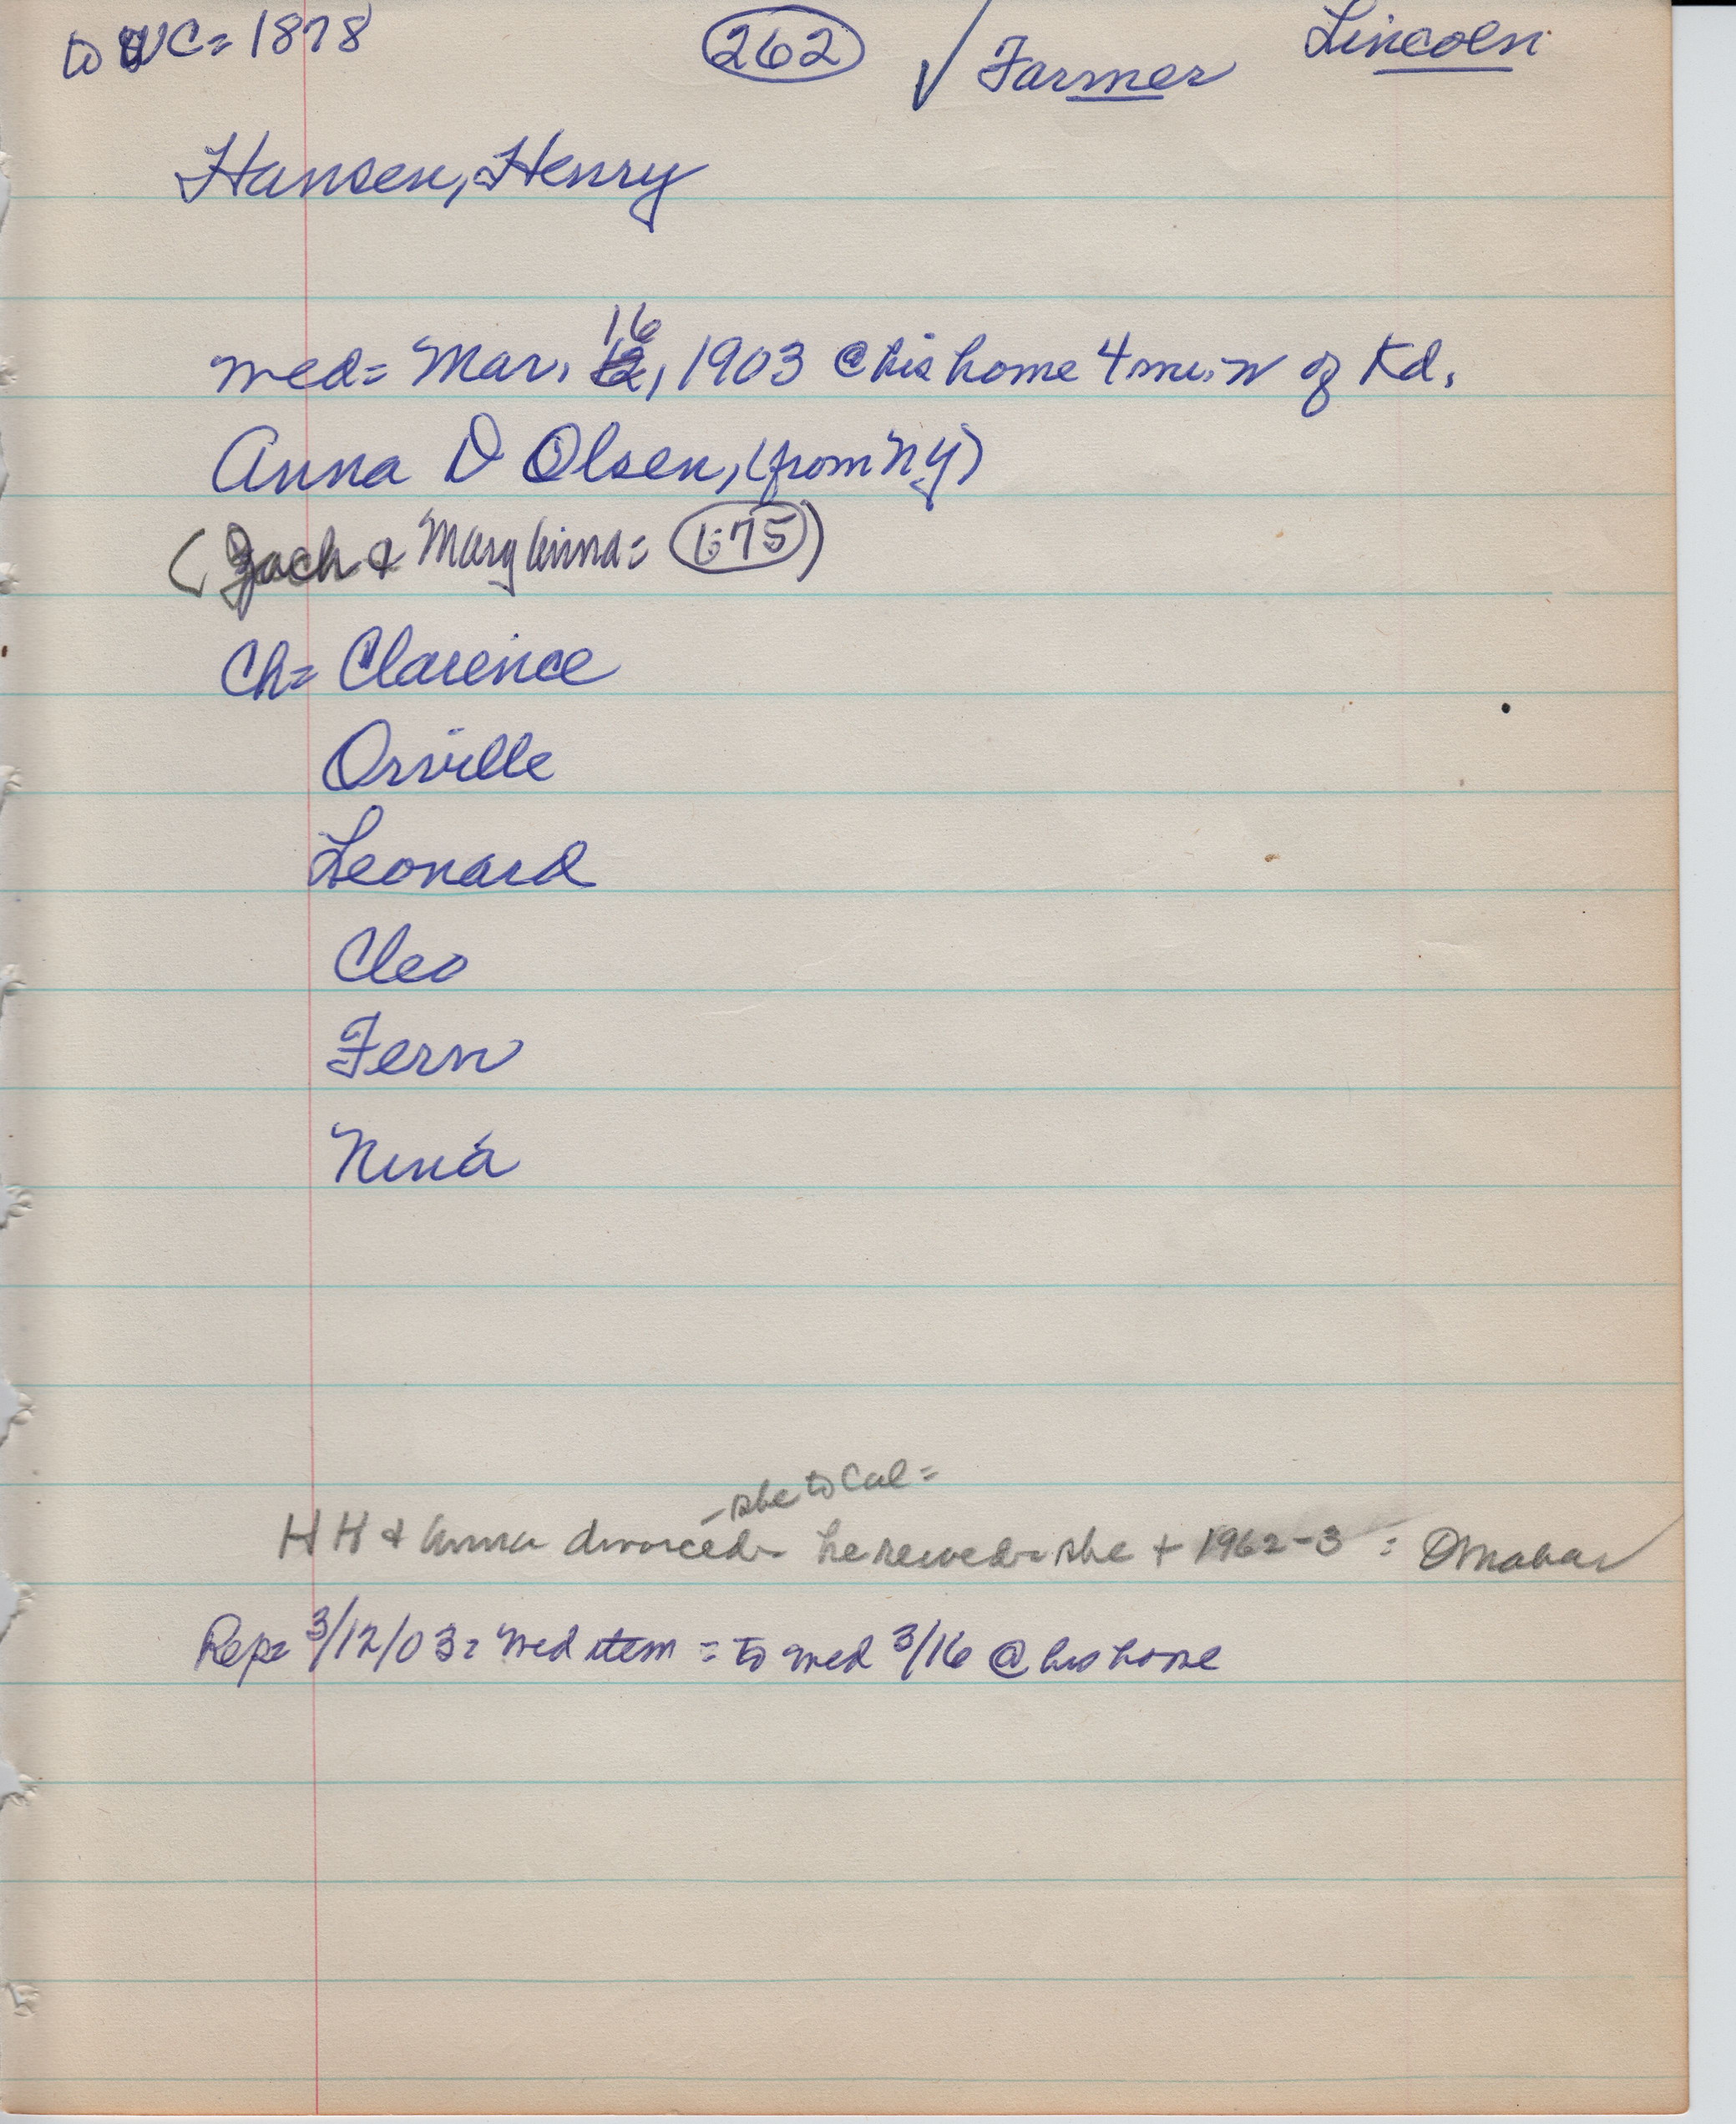 to WC = 1878 (262) ✓ Farmer Lincoln
Hansen, Henry
16
wed = Mar. 12, 1903 @ his home 4 mi. N of Kd.
Anna D Olsen, (from NY)
(Zach & Mary Anna = 675)
Ch = Clarence
Orville
Leonard
Cleo
Fern
Nina
- she to Cal =
HH & Anna divorced - he rewed - she + 1962-3 = Omaha
Rep = 3/12/03 = wed item = to wed 3/16 @ his home